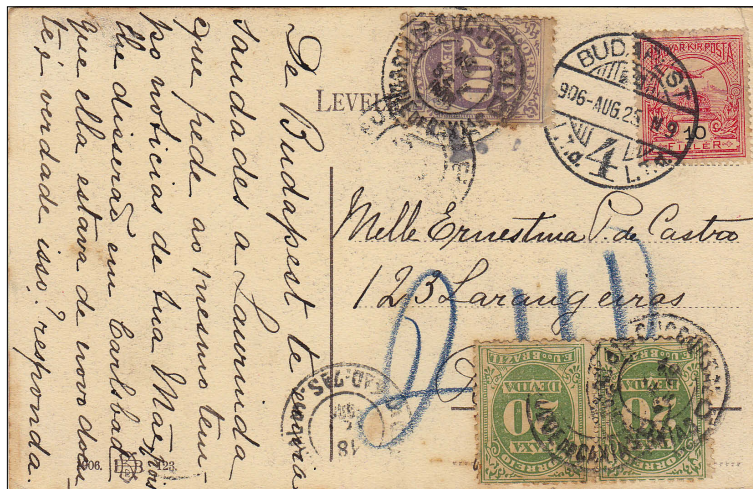 De Budapest te envia
saudades a Laurinda
que pede ao mesmo tem-
po noticias de tua Mãe pois
lhe disserão em Carlsbad
que ella estava de novo doen-
te; é verdade isso? responda.
1906. 123.
LEVEL
BUDAPEST
906-AUG.25
4
MAGYAR KIR. POSTA
10
FILLÉR
Melle Ernestina P. de Castro
123 Larangeiras
TAXA
200
DENDA
E.U. DO BRAZIL
DENDA
20
TAXA
CORREIO
E.U. DO BRAZIL
DENDA
20
TAXA
CORREIO
18